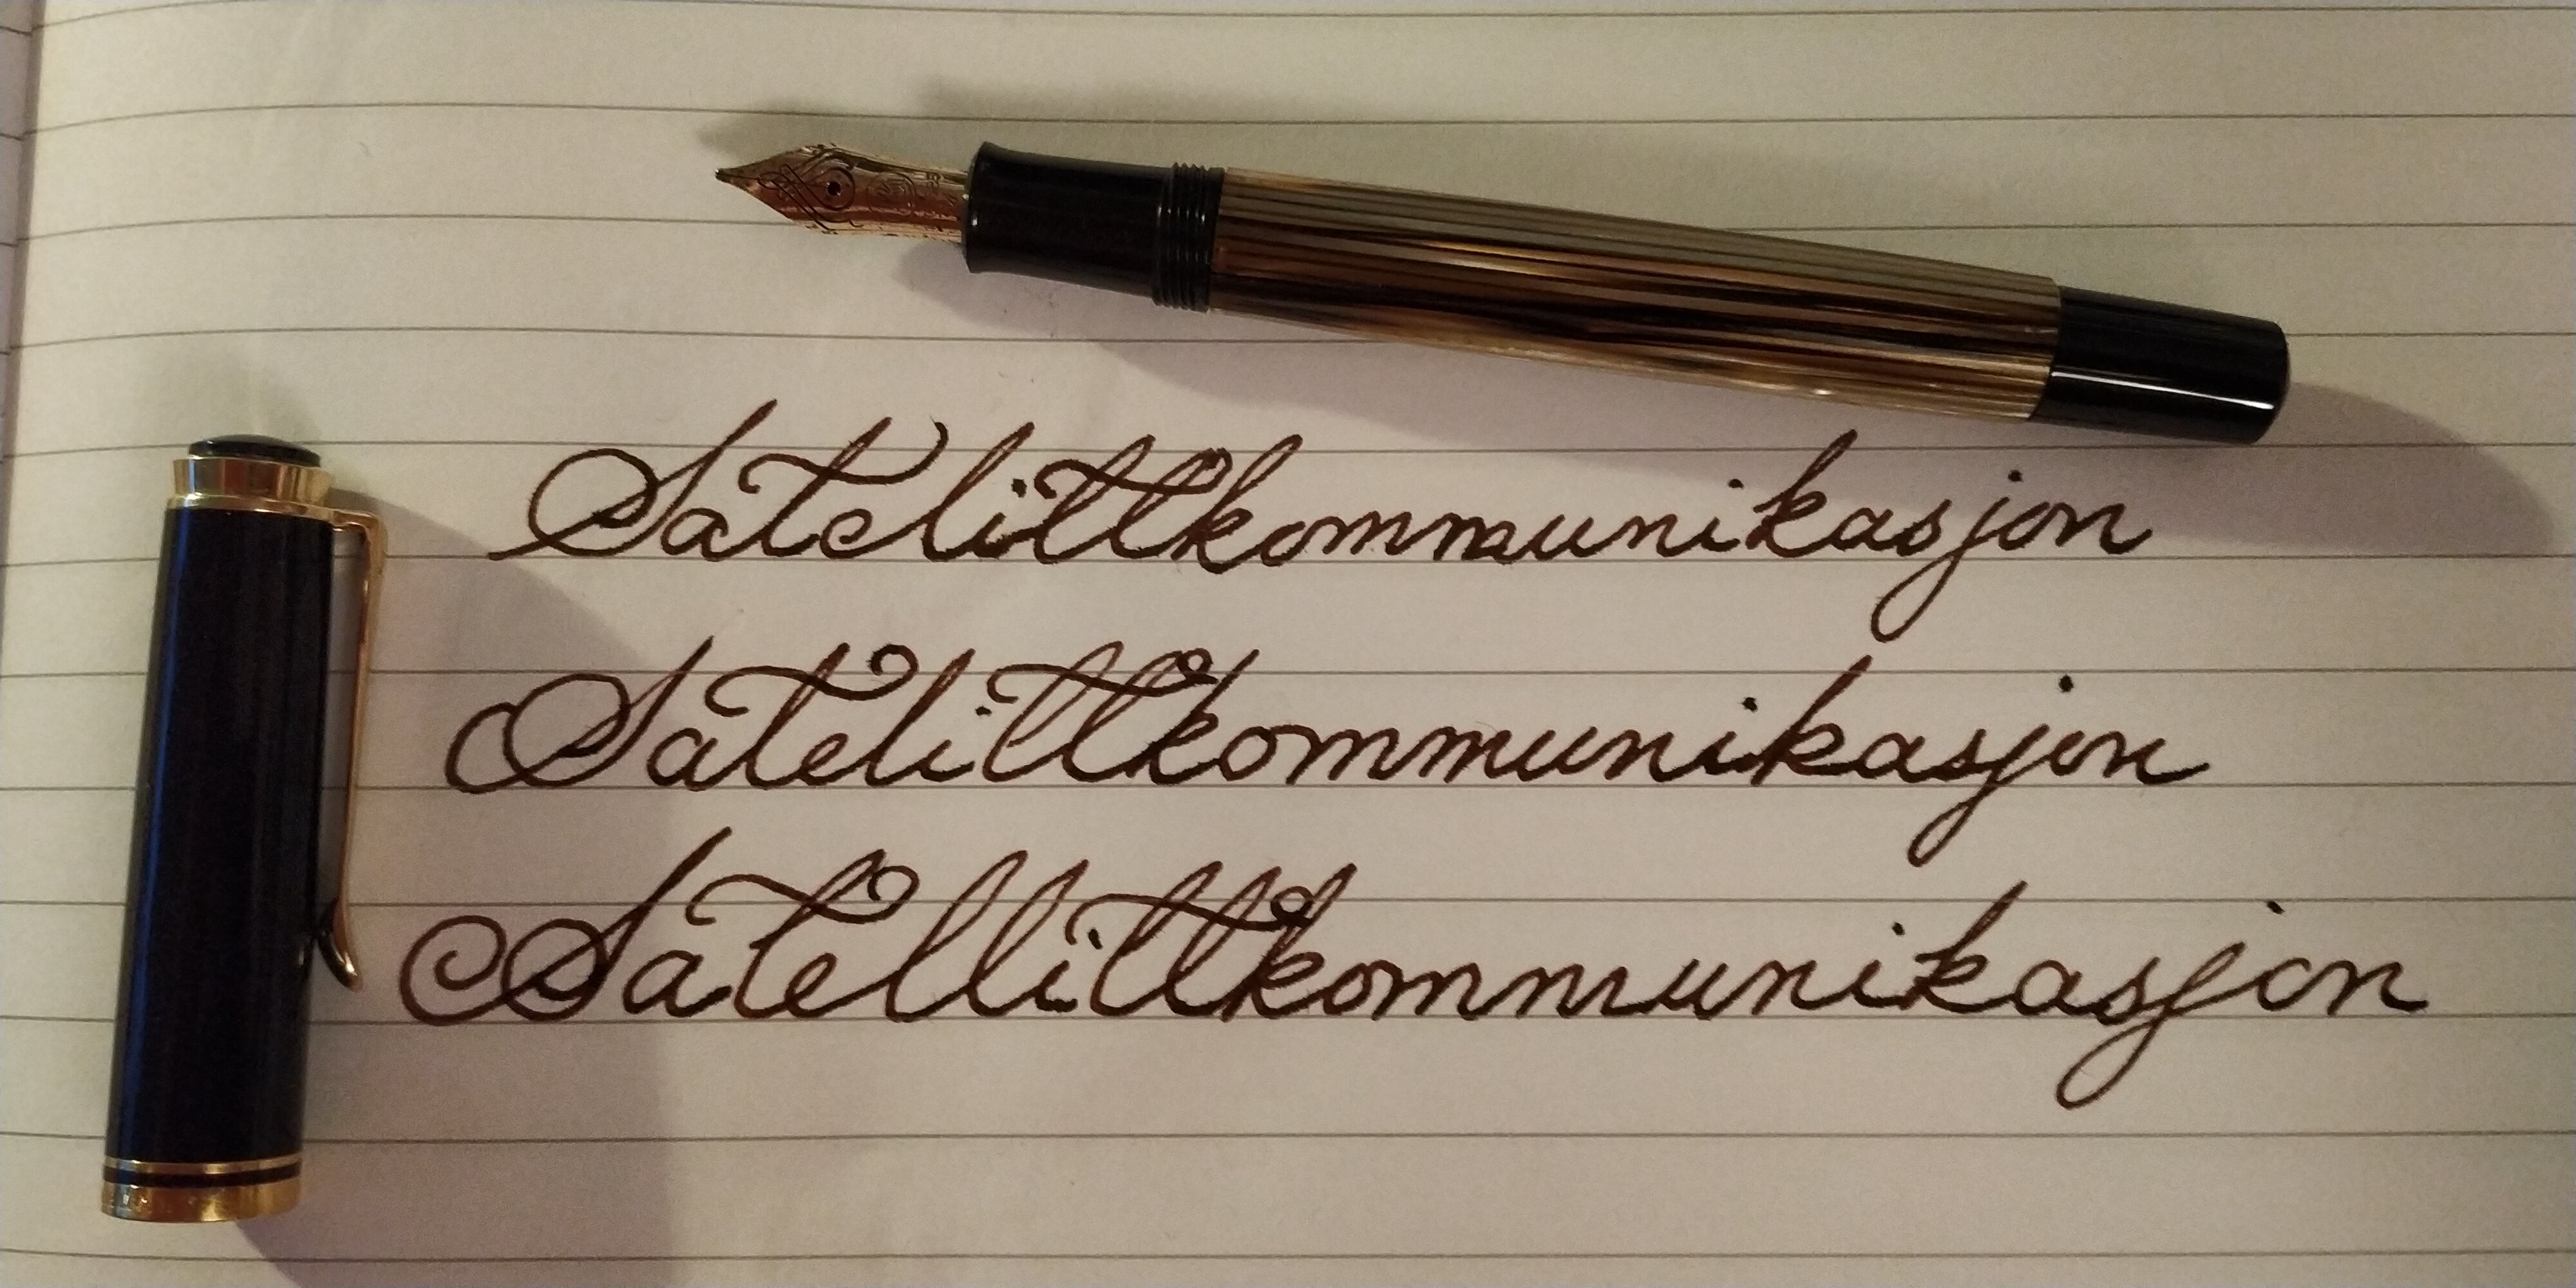 Satelittkommunikasjon
Satelittkommunikasjon
Satellittkommunikasjon